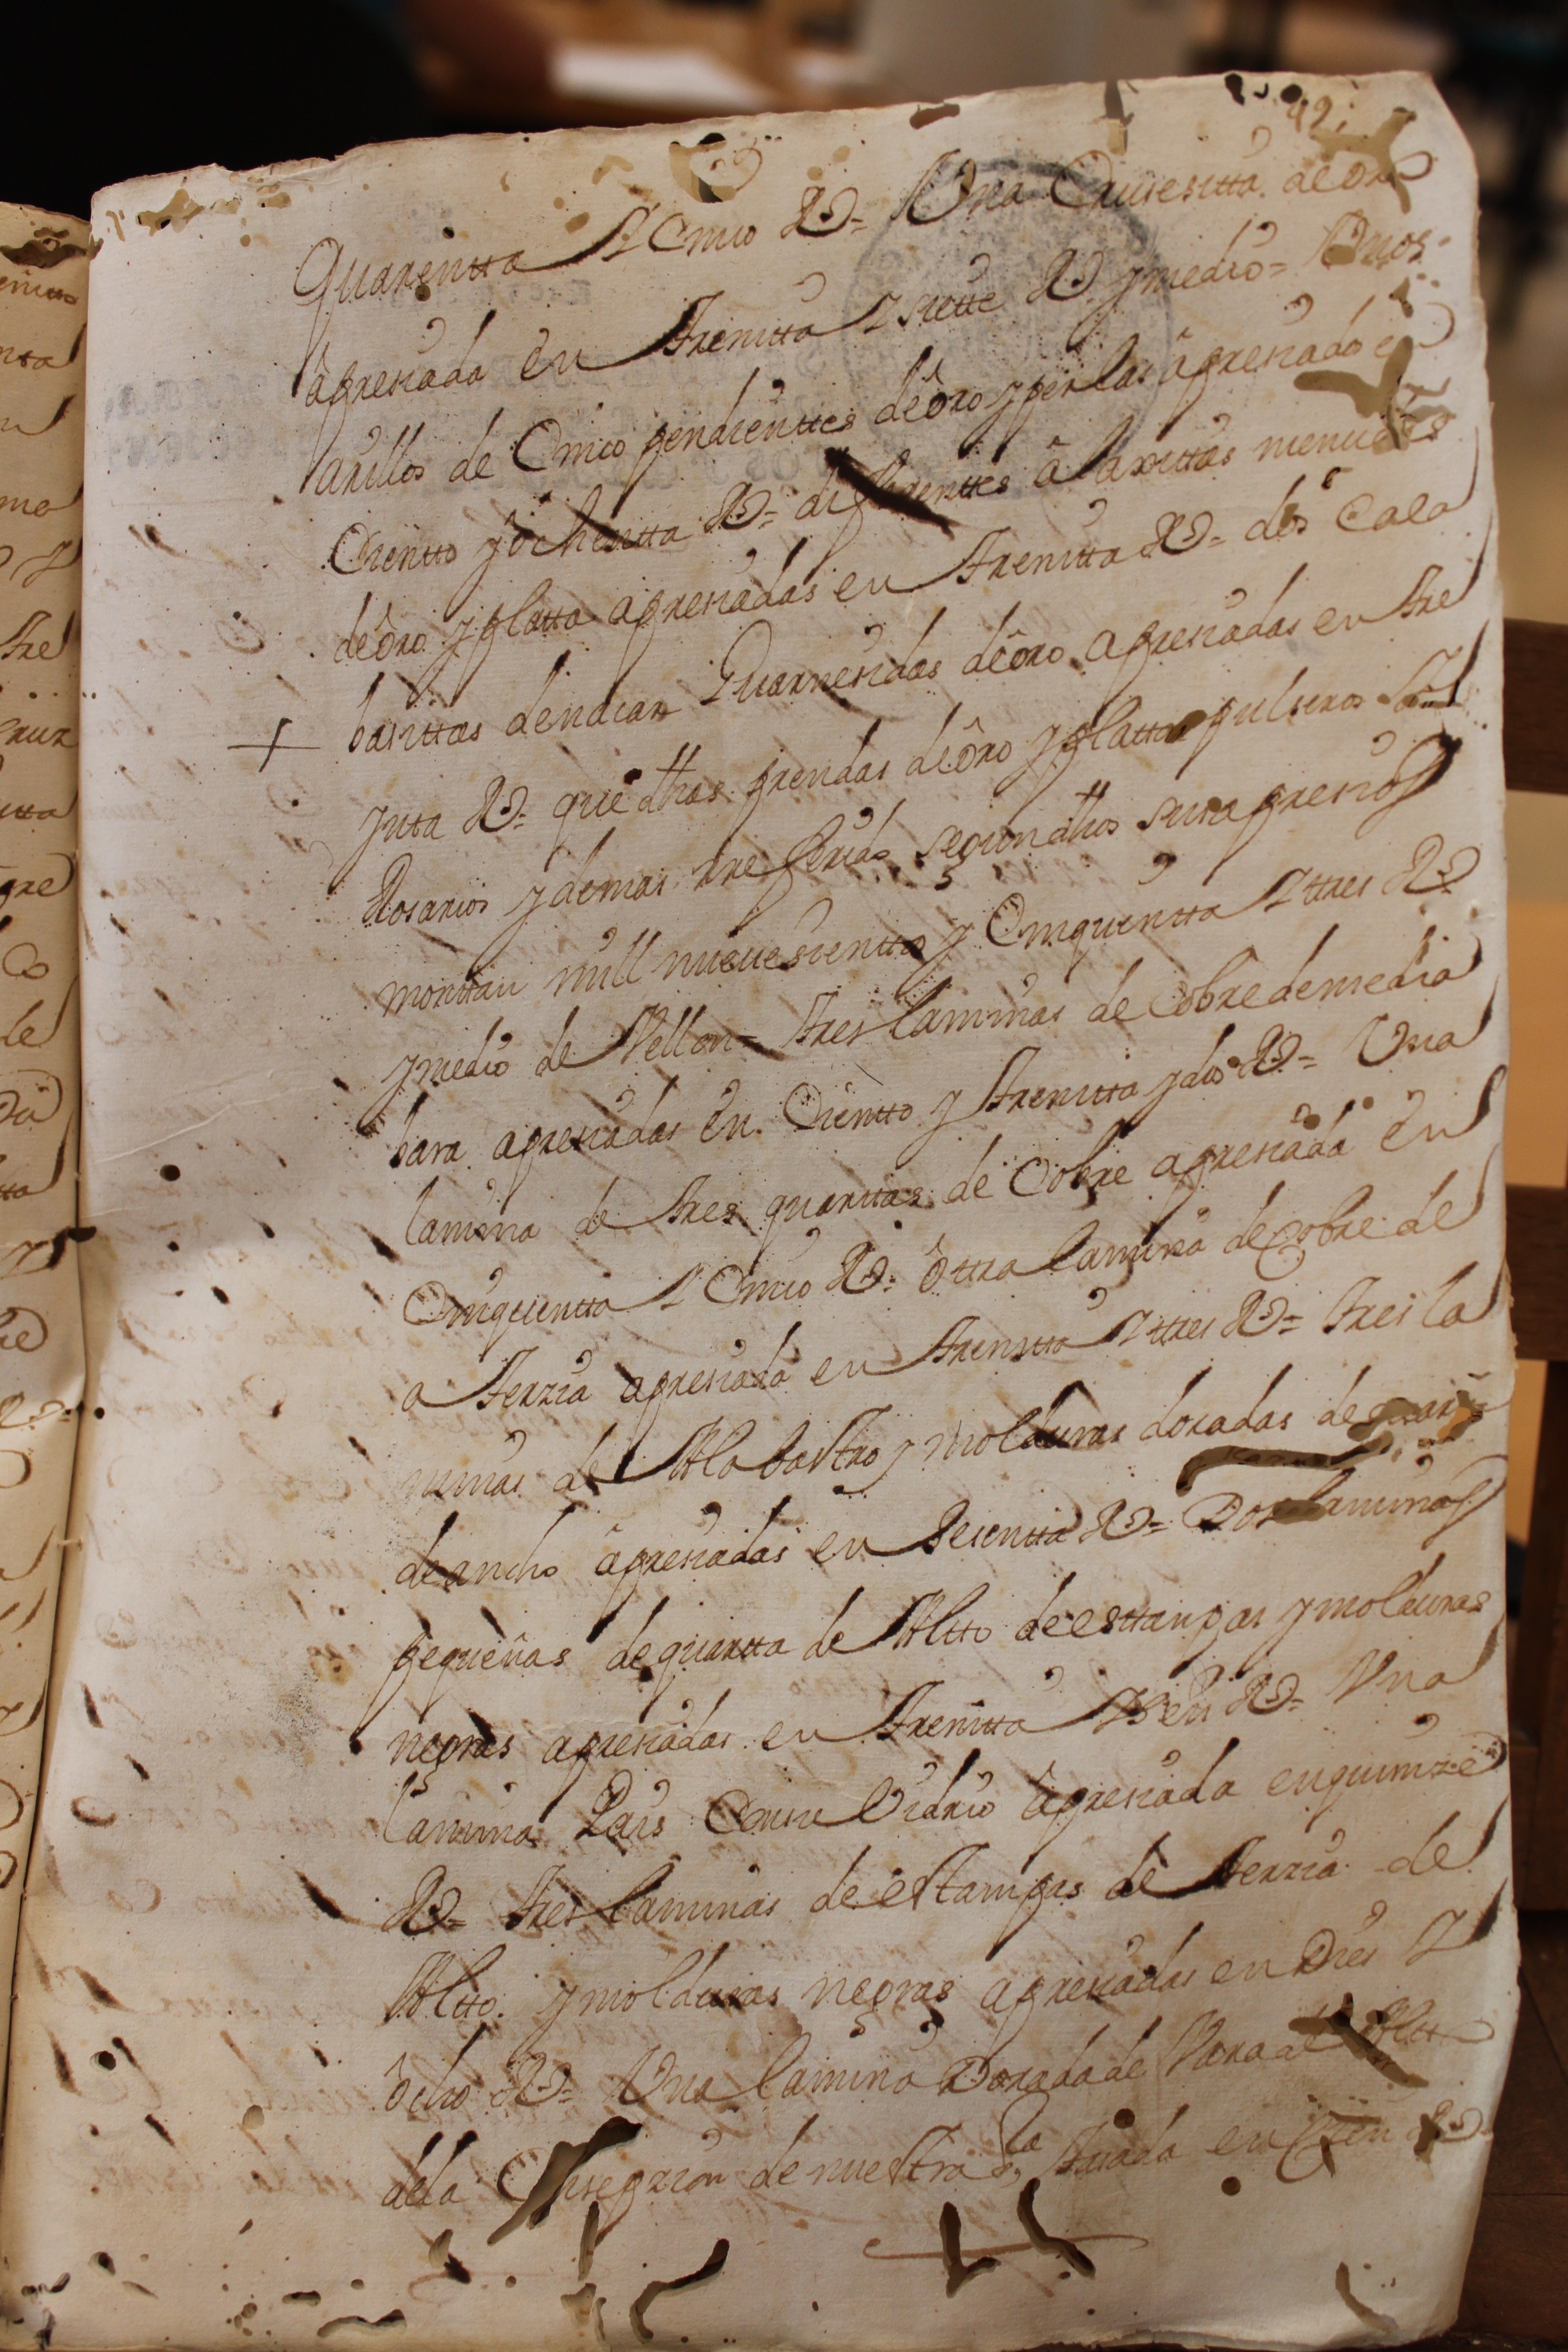 42
Quarentta Y Cinco Rs= Una Cruzesitta de Oro
âpresiada en Trentta Y siette Rs y medio= Unos
arillos de Cinco pendienttes de ôro y perlas âpresiado en
Cientto y ôchentta Rs= diferenttes âlaxittas menudas
de ôro y platta apresiadas en Trentta Rs= dos Cala
basittas de nacar Guarnesidas de ôro apresiadas en tre
ynta Rs= que dhas prendas de ôro y platta pulseras
Rosarios y demas rreferido segun dhos sus apresios
monttan mill nuevesientos y Cinquentta Y ttres Rs
y medio de Vellon= Tres laminas de Cobre de media
bara apresiadas en Cientto y Trentta y dos Rs= Una
lamina de tres quarttas de Cobre apresiada en
Cinquentta Y Cinco Rs= ôttra lamina de Cobre de
a Terzia apresiada en Trentta Y ttres Rs= tres la
minas de Alabastro y molduras doradas de quarta
de ancho âpresiadas en Sesentta Rs= Dos laminas
pequeñas de quartta de Altto de esttanpas y molduras
negras apresiadas en Trentta Y Seis Rs= Una
lamina Pais Con su Vidrio âpresiada en quinze
Rs= tres laminas de estampas de terzia de
Altto y molduras negras apresiadas en Dies Y
ôcho Rs= Una lamina Dorada de Vara de Altto
de la Consepzion de nuestra Sra. tasada en Cien Rs